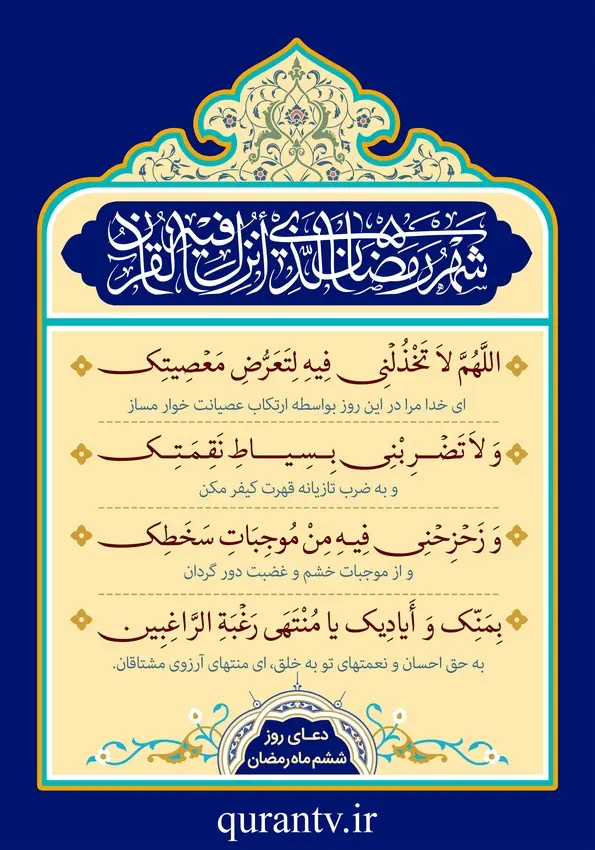 شَهْرُ رَمَضَانَ الَّذِي أُنْزِلَ فِيهِ الْقُرْآنُ
اللَّهُمَّ لاَ تَخْذُلْنِی فِیهِ لِتَعَرُّضِ مَعْصِیَتِکَ
ای خدا مرا در این روز بواسطه ارتکاب عصیانت خوار مساز
وَ لاَ تَضْرِبْنِی بِسِیَاطِ نَقِمَتِکَ
و به ضرب تازیانه قهرت کیفر مکن
وَ زَحْزِحْنِی فِیهِ مِنْ مُوجِبَاتِ سَخَطِکَ
و از موجبات خشم و غضبت دور گردان
بِمَنِّکَ وَ أَیَادِیکَ یَا مُنْتَهَى رَغْبَةِ الرَّاغِبِینَ
به حق احسان و نعمتهای تو به خلق، ای منتهای آرزوی مشتاقان.
دعای روز
ششم ماه رمضان
qurantv.ir